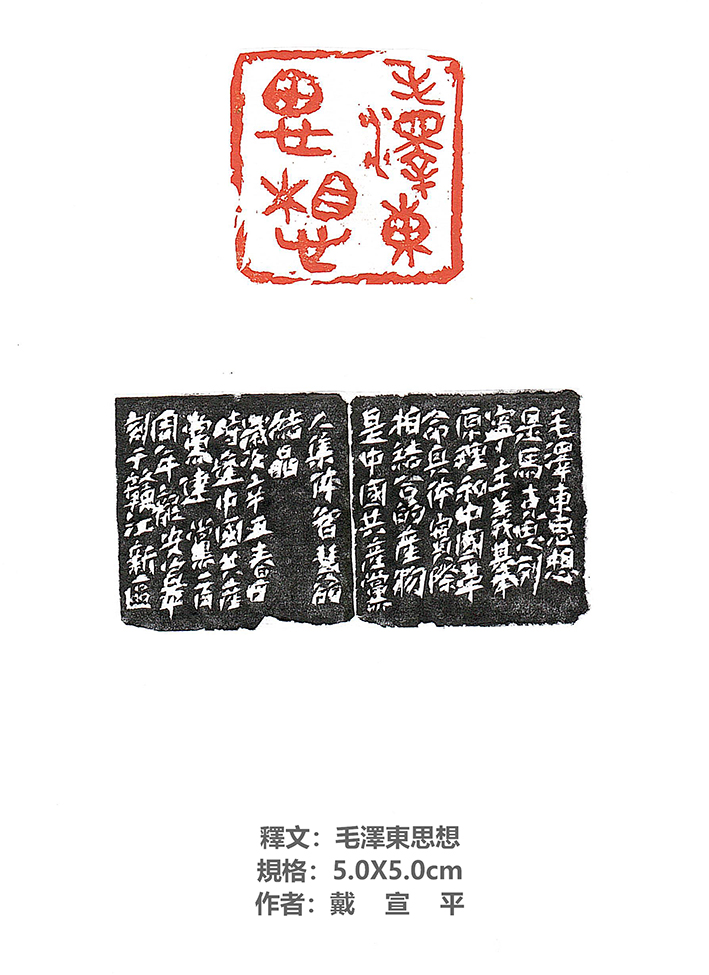 毛澤東
思想
毛澤東思想
是馬克思列
寧主義基
原理和中國革
命具体實際
相結合的產物
是中國共產黨
人集体智慧的
結晶
歲次辛丑春日
時逢中國共產
黨建黨一百
周年宣平
刻于贛江新區
釋文：毛澤東思想
規格：5.0X5.0cm
作者：戴 宣 平